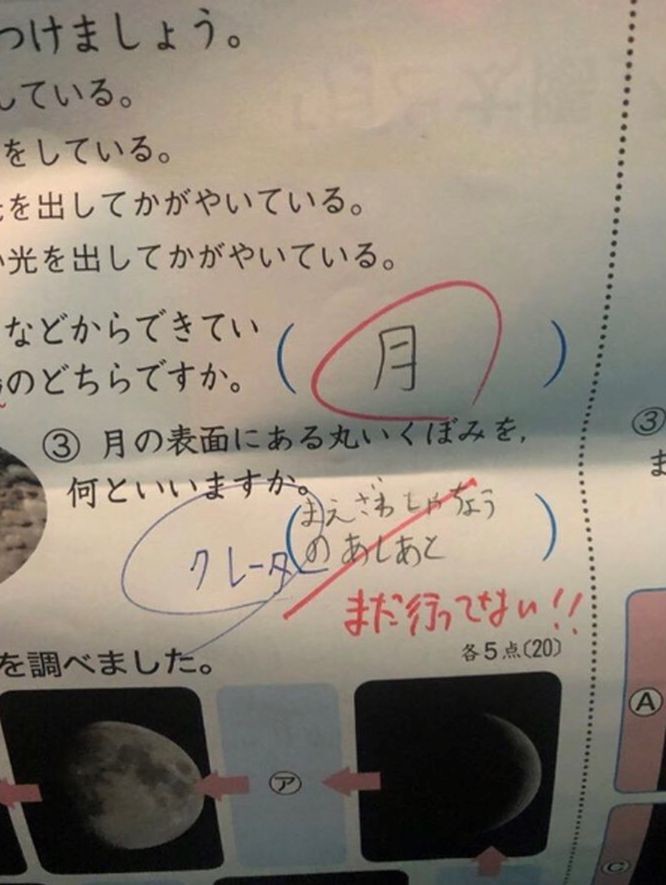 つけましょう。
している。
をしている。
を出してかがやいている。
光を出してかがやいている。
などからできてい
のどちらですか。
( 月 )
③ 月の表面にある丸いくぼみを,
何といいますか。
(まえざわしゃちょう
のあしあと)
クレーター
まだ行ってない!!
各5点〔20〕
を調べました。
㋐
③
ま
Ⓐ
Ⓒ